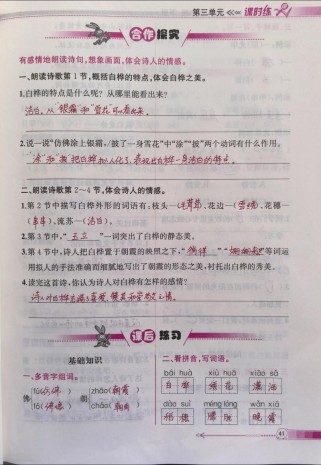 第三单元 课时练
合作探究
有感情地朗读诗句,想象画面,体会诗人的情感。
一、朗读诗歌第1节,概括白桦的特点,体会白桦之美。
1.白桦的特点是什么呢?从哪里能看出来?
洁白。从"银霜"和"雪花"可以看出来。
2.说一说"仿佛涂上银霜,/披了一身雪花"中"涂""披"两个动词有什么作用。
"涂"和"披"把白桦拟人化了,表现出白桦一身洁白的特点。
二、朗读诗歌第2~4节,体会诗人的情感。
1.第2节中描写白桦外形的词语有:枝头—(毛茸茸)、花边—(雪绣)、花穗—(串串)、流苏—(洁白)。
2.第3节中,"玉立"一词突出了白桦的静态美。
3.第4节中,诗人把白桦置于朝霞的映照之下,"徜徉""姗姗来迟"等词运
用拟人的手法准确而细腻地写出了朝霞的形态之美,衬托出白桦的秀美。
4.读完这首诗,你认为诗人对白桦有怎样的感情?
诗人对白桦充满了喜爱、赞美和
课后练习
基础知识
一、多音字组词。
佛 fú(仿佛) fó(佛像)
朝 zhāo(朝霞) cháo(朝南)
二、看拼音,写词语。
bái huà xiù huā xiāo sǎ
白桦 绣花 潇洒
dào suì méng lóng wǎn xiá
稻穗 朦胧 晚霞
41